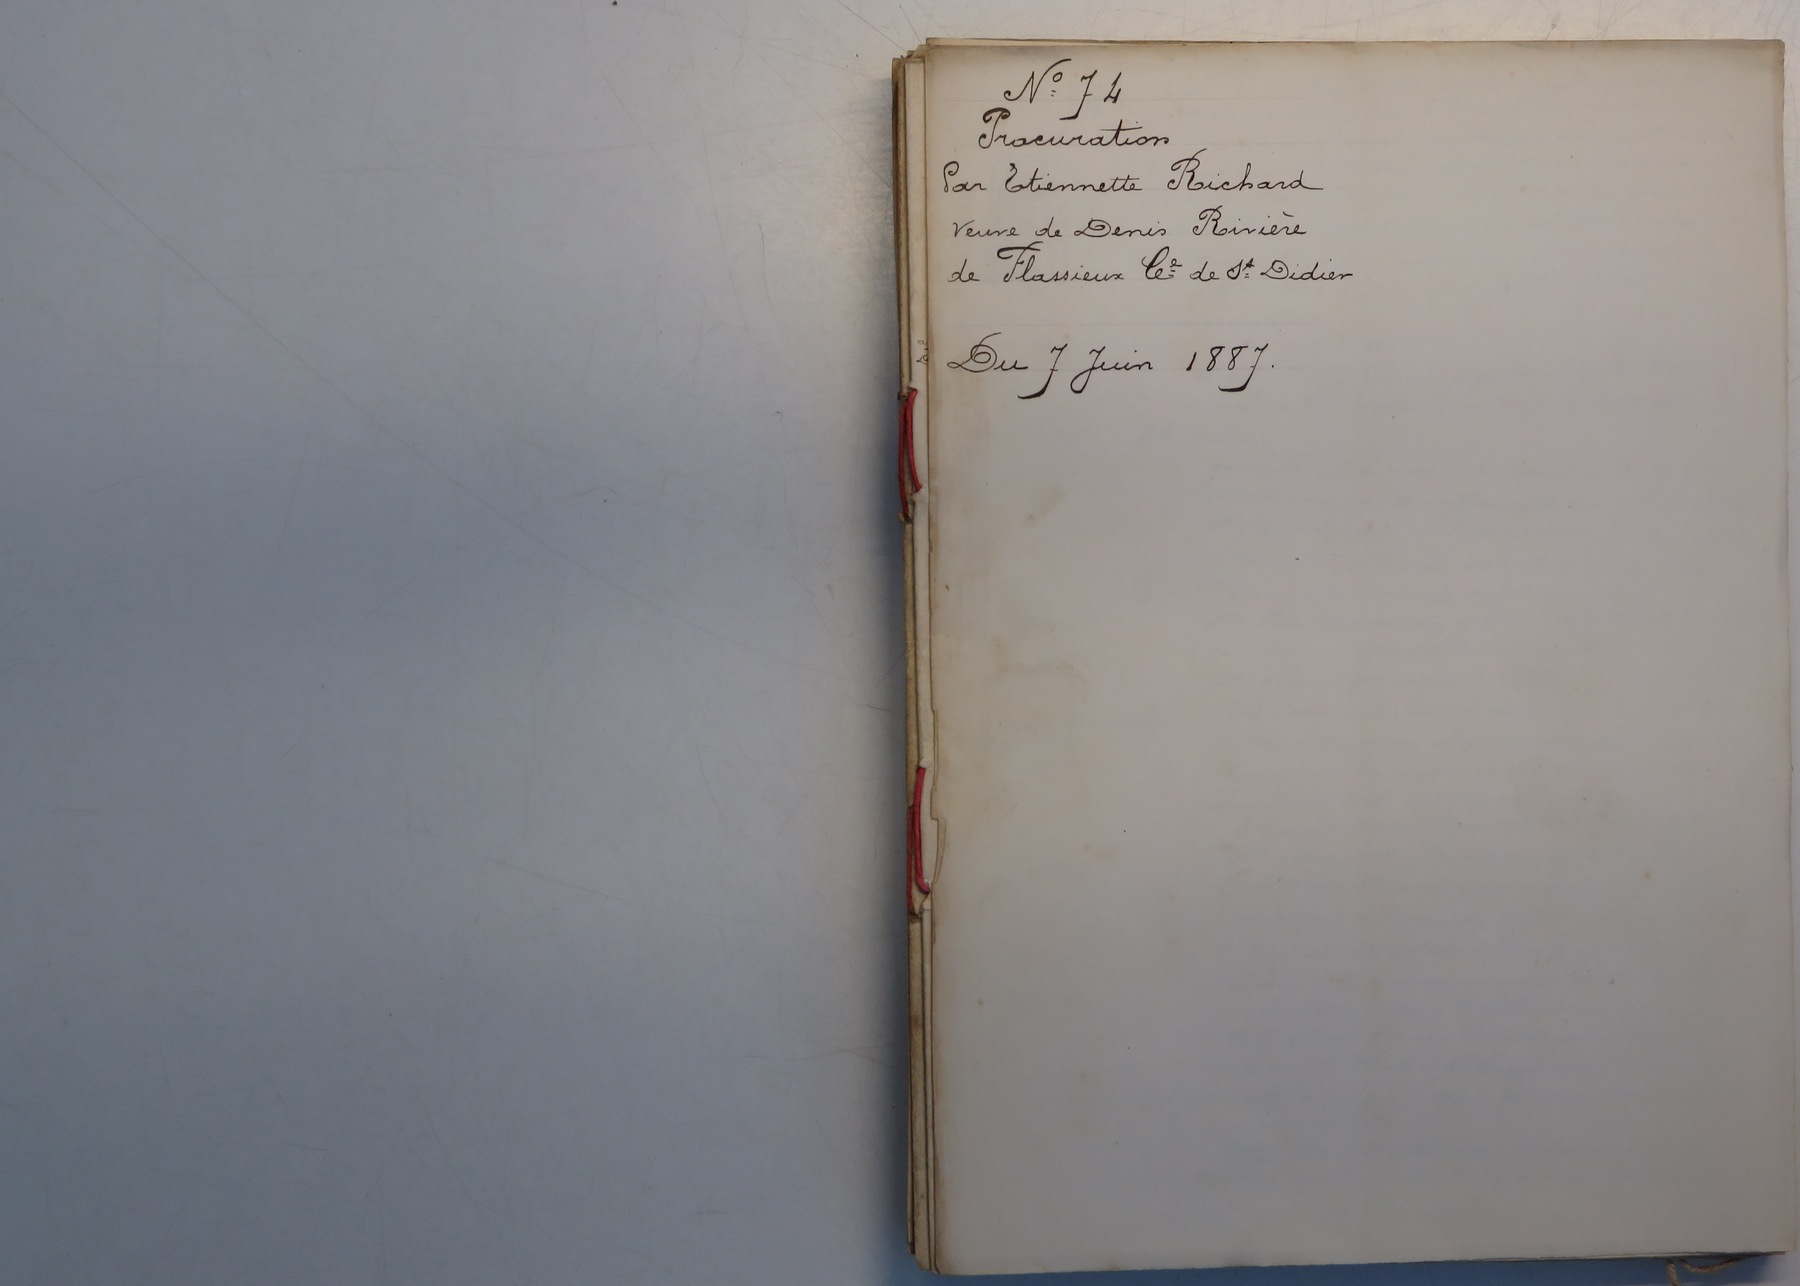 N° 74
Procuration
Par Etiennette Richard
veuve de Denis Rivière
de Flassieux Cne de St Didier
Du 7 Juin 1887.